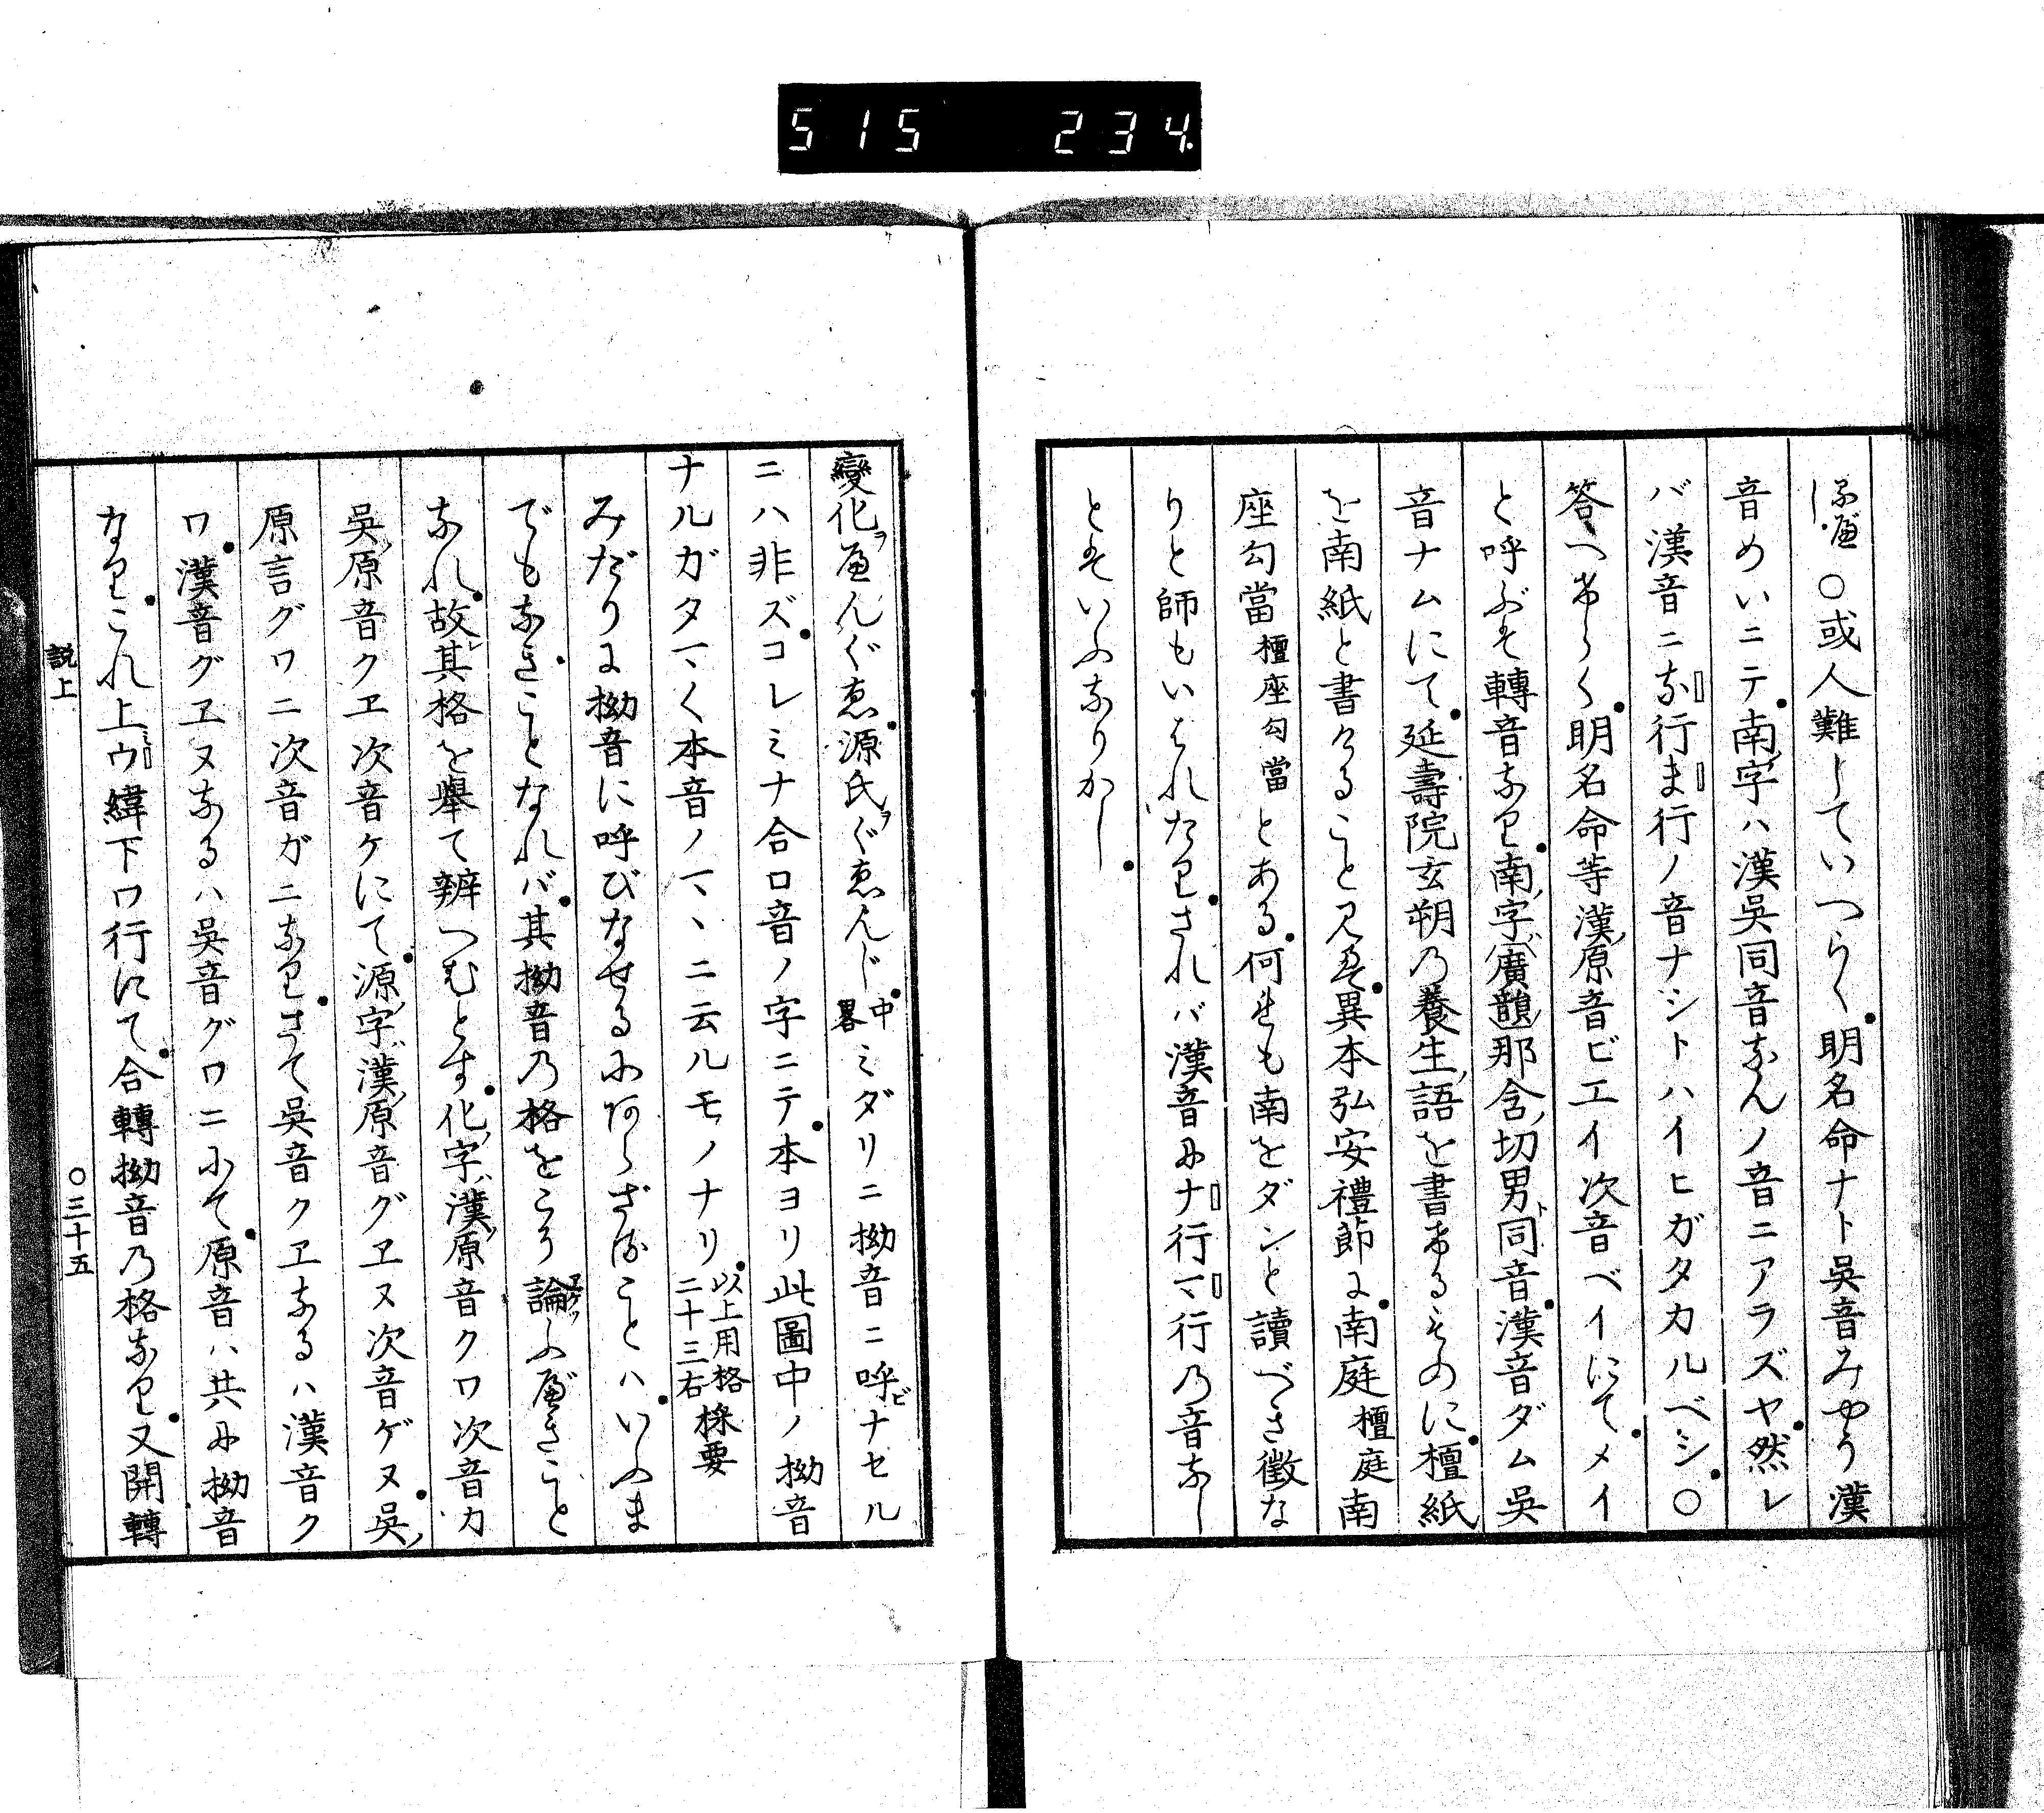 515 234.
るべし。○或人難じていへらく。明名命ナト吳音みやう漢
音めいニテ。南ノ字ハ漢吳同音なんノ音ニアラズヤ。然レ
バ漢音ニな行ま行ノ音ナシトハイヒガタカルベシ。○
答へけらく。明名命等漢ノ原音ビエイ次音ベイにて。メイ
と呼ぶは轉音なり。南ノ字ハ廣韻ノ那含ノ切男ト同音。漢音ダム吳
音ナムにて。延壽院玄朔の養生ノ語を書けるものに。檀紙
を南紙と書けること見ゆ。異本弘安禮節に。南庭檀庭南
座勾當檀座勾當とある。何れも南をダンと讀べき徵な
りと師もいはれたり。されバ漢音にナ行マ行の音なし
とはいふなりかし。
變化ヲへんぐゑ。源氏ヲぐゑんじ。中畧ミダリニ拗音ニ呼ビナセル
ニハ非ズ。コレミナ合口音ノ字ニテ。本ヨリ此圖中ノ拗音
ナルガタマ〱本音ノマヽニ云ルモノナリ。以上用格二十三右採要
みだりに拗音に呼びなせるにあらざることハ。いふま
でもなきことなれバ。其拗音の格をこそ論ふべきこと
なれ。故レ其格を擧て辨へむとす。化ノ字ハ漢ノ原音クワ次音カ
吳ノ原音クヱ次音ケにて。源ノ字ハ漢ノ原音グヱヌ次音ゲヌ。吳ノ
原言グワニ次音ガニなり。さて吳音クヱなるハ漢音ク
ワ。漢音グヱヌなるハ吳音グワニにて。原音ハ共に拗音
なり。これ上ウ緯下ワ行にて。合轉拗音の格なり。又開轉
説上
○三十五